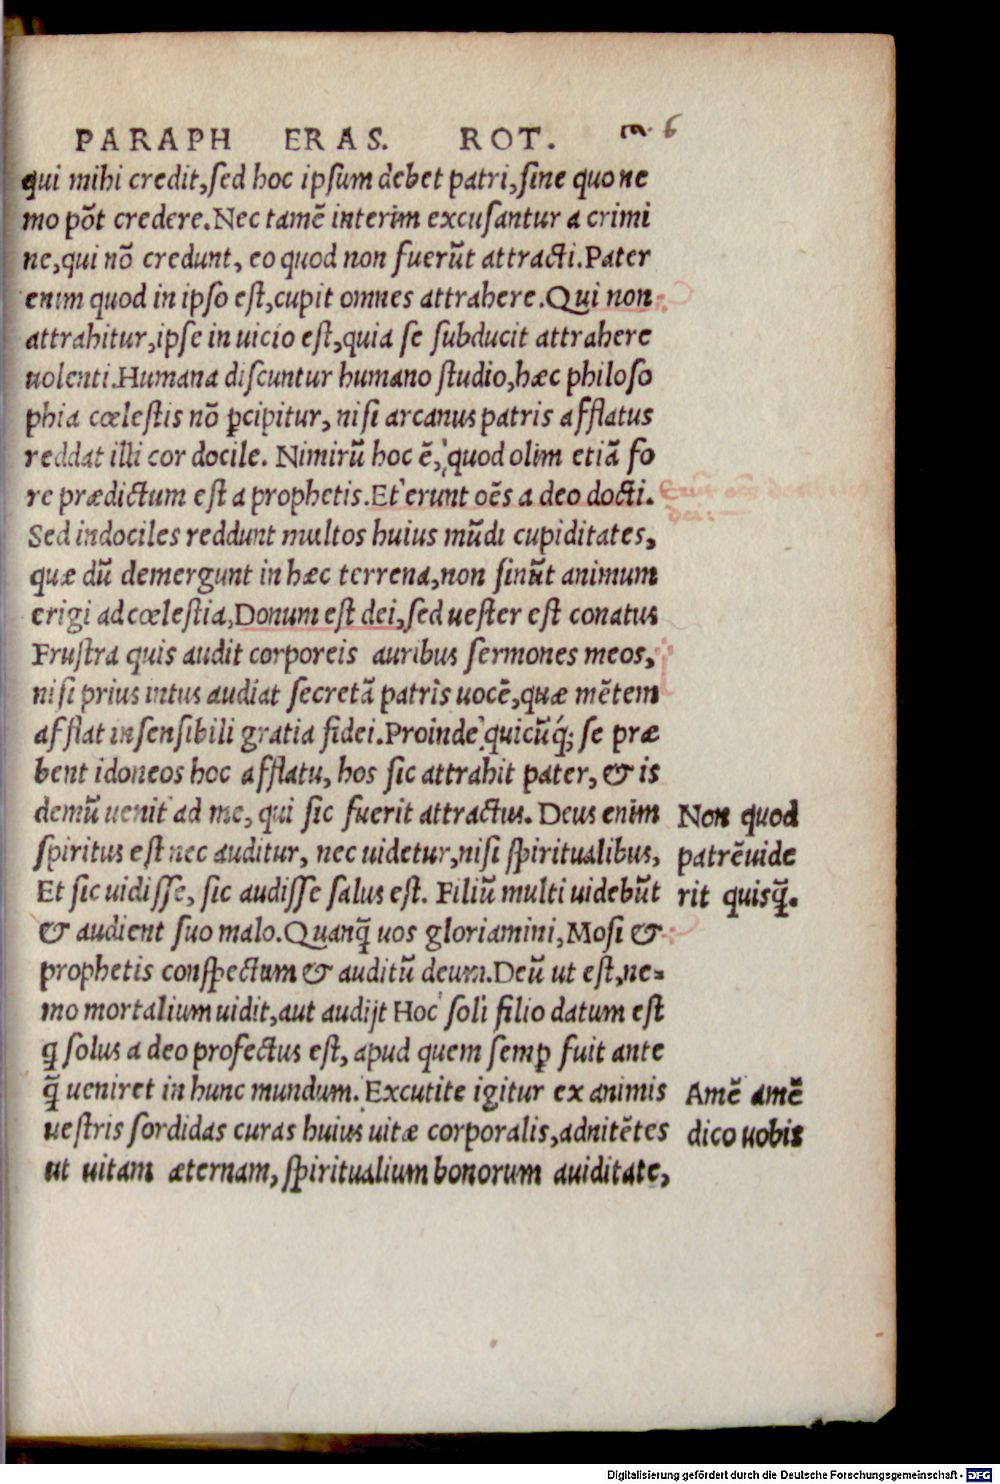 PARAPH ERAS. ROT. 6
qui mihi credit,sed hoc ipsum debet patri,sine quo ne
mo põt credere.Nec tamẽ interim excusantur a crimi
ne,qui nõ credunt, eo quod non fuerũt attracti.Pater
enim quod in ipso est,cupit omnes attrahere.Qui non
attrahitur,ipse in uicio est,quia se subducit attrahere
uolenti.Humana discuntur humano studio,hæc philoso
phia cœlestis nõ ꝑcipitur, nisi arcanus patris afflatus
reddat illi cor docile. Nimirũ hoc ẽ, quod olim etiã fo
re prædictum est a prophetis.Et erunt oẽs a deo docti.
Sed indociles reddunt multos huius mũdi cupiditates,
quæ dũ demergunt in hæc terrena,non sinũt animum
erigi ad cœlestia,Donum est dei,sed uester est conatus
Frustra quis audit corporeis auribus sermones meos,
nisi prius intus audiat secretã patris uocẽ,quæ mẽtem
afflat insensibili gratia fidei.Proinde quicũq́; se præ
bent idoneos hoc afflatu, hos sic attrahit pater, & is
demũ uenit ad me, qui sic fuerit attractus. Deus enim
Non quod
spiritus est nec auditur, nec uidetur,nisi spiritualibus,
patrẽuide
Et sic uidisse, sic audisse salus est. Filiũ multi uidebũt
rit quisq̃.
& audient suo malo.Quanq̃ uos gloriamini,Mosi &
prophetis conspectum & auditũ deum.Deũ ut est,ne=
mo mortalium uidit,aut audijt Hoc soli filio datum est
q solus a deo profectus est, apud quem semꝑ fuit ante
q̃ ueniret in hunc mundum. Excutite igitur ex animis
Amẽ amẽ
uestris sordidas curas huius uitæ corporalis,adnitẽtes
dico uobis
ut uitam æternam, spiritualium bonorum auiditate,
Digitalisierung gefördert durch die Deutsche Forschungsgemeinschaft - DFG